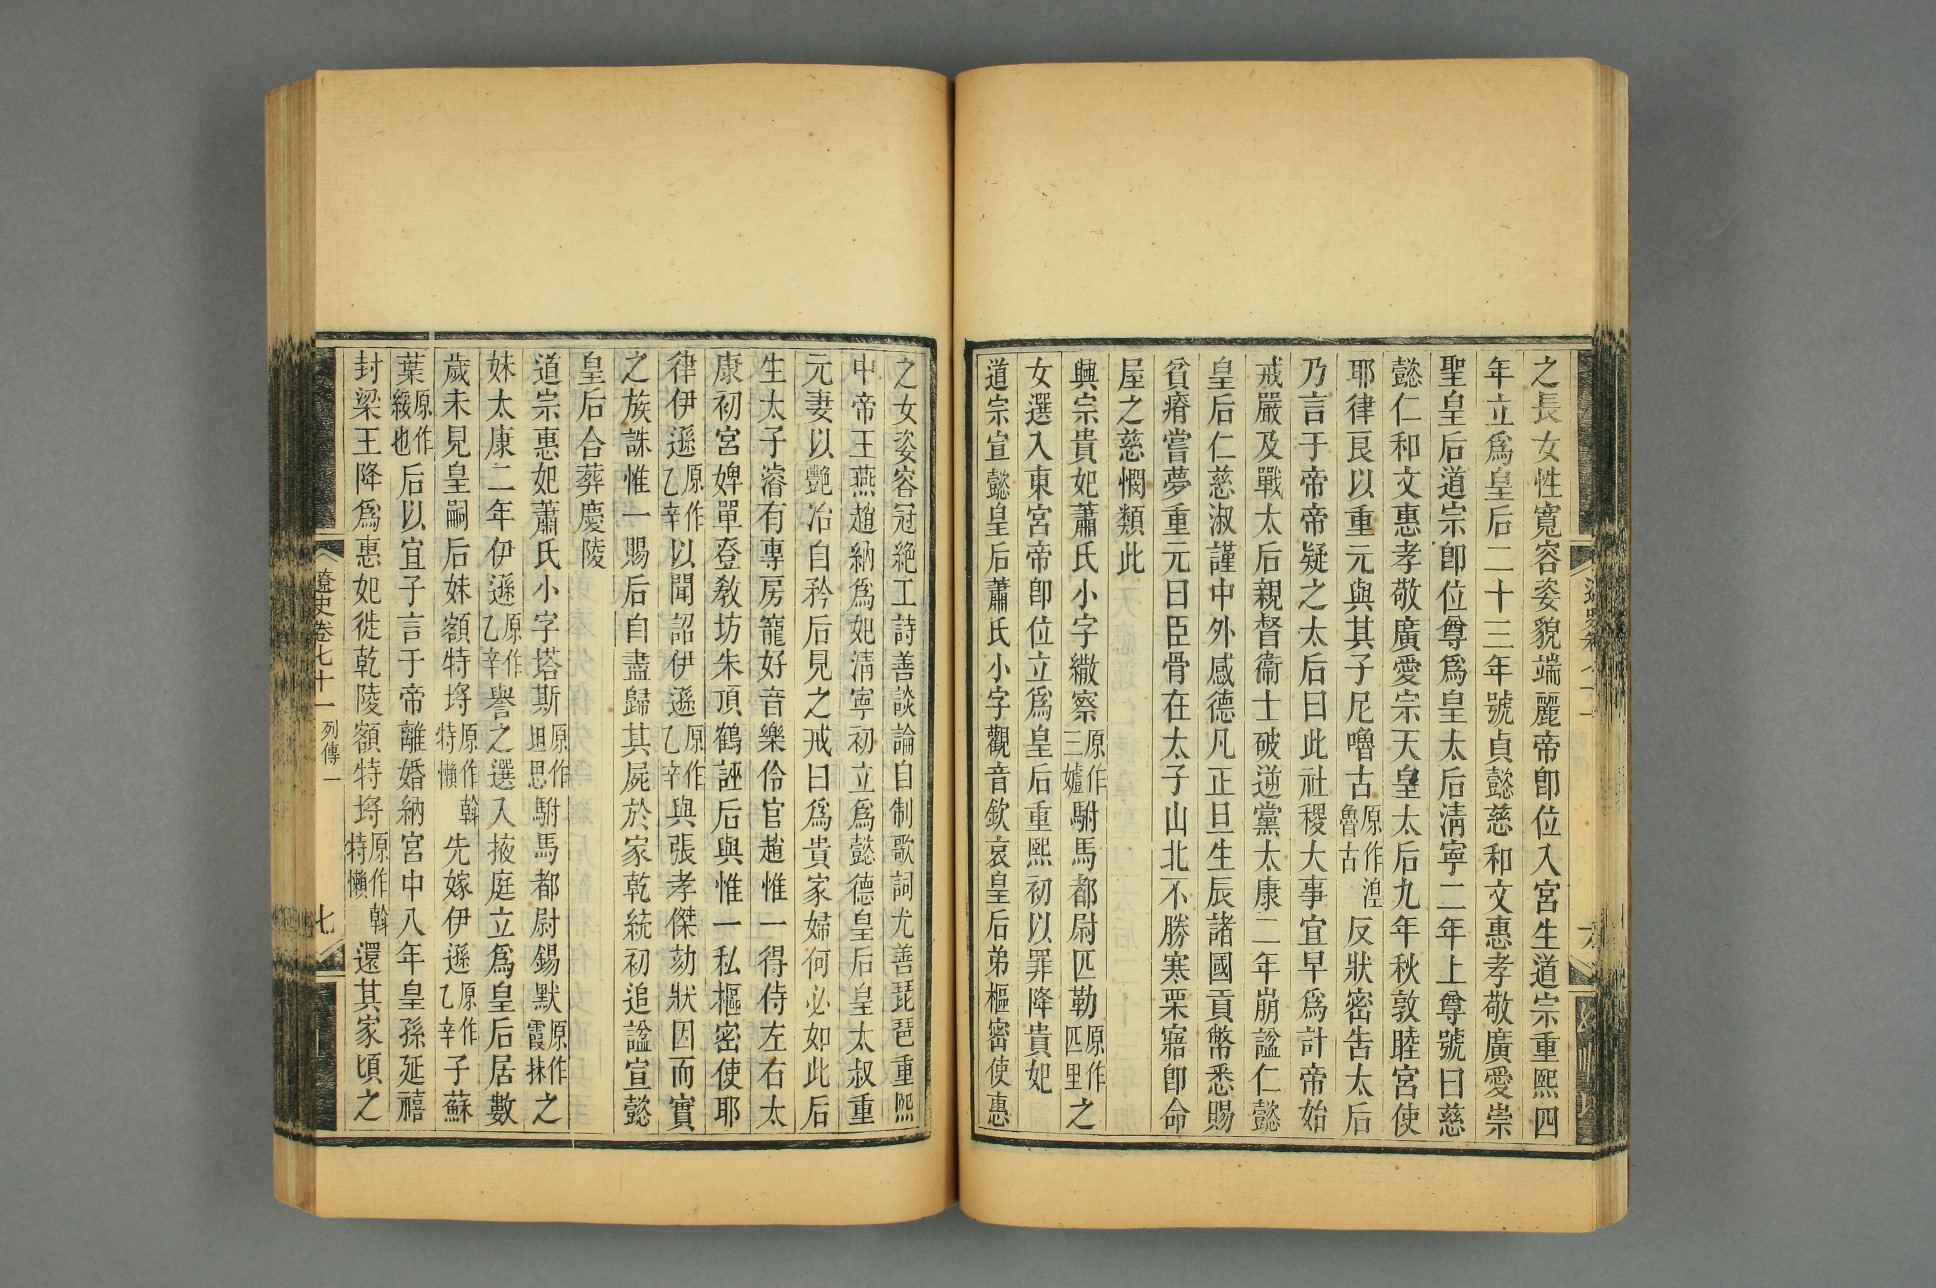 之長女性寬容姿貌端麗帝卽位入宮生道宗重熙四
年立爲皇后二十三年號貞懿慈和文惠孝敬廣愛崇
聖皇后道宗卽位尊爲皇太后淸寧二年上尊號曰慈
懿仁和文惠孝敬廣愛宗天皇太后九年秋敦睦宮使
耶律良以重元與其子尼嚕古原作湼魯古反狀密吿太后
乃言于帝帝疑之太后曰此社稷大事宜早爲計帝始
戒嚴及戰太后親督衞士破逆黨太康二年崩諡仁懿
皇后仁慈淑謹中外感德凡正旦生辰諸國貢幣悉賜
貧瘠嘗夢重元曰臣骨在太子山北不勝寒栗寤卽命
屋之慈憫類此
興宗貴妃蕭氏小字繖察原作三㜑駙馬都尉匹勒原作匹里之
女選入東宮帝卽位立爲皇后重熙初以罪降貴妃
道宗宣懿皇后蕭氏小字觀音欽哀皇后弟樞密使惠
之女姿容冠絶工詩善談論自制歌詞尤善琵琶重熙
中帝王燕趙納爲妃淸寧初立爲懿德皇后皇太叔重
元妻以艷冶自矜后見之戒曰爲貴家婦何必如此后
生太子濬有專房寵好音樂伶官趙惟一得侍左右太
康初宮婢單登敎坊朱頂鶴誣后與惟一私樞密使耶
律伊遜原作乙辛以聞詔伊遜原作乙辛與張孝傑劾狀因而實
之族誅惟一賜后自盡歸其屍於家乾統初追諡宣懿
皇后合葬慶陵
道宗惠妃蕭氏小字塔斯原作坦思駙馬都尉錫默原作霞抹之
妹太康二年伊遜原作乙辛譽之選入掖庭立爲皇后居數
歲未見皇嗣后妹額特埒原作斡特懶先嫁伊遜原作乙辛子蘇
葉原作綏也后以宜子言于帝離婚納宮中八年皇孫延禧
封梁王降爲惠妃徙乾陵額特埒原作斡特懶還其家頃之
遼史卷七十一 列傳一 七